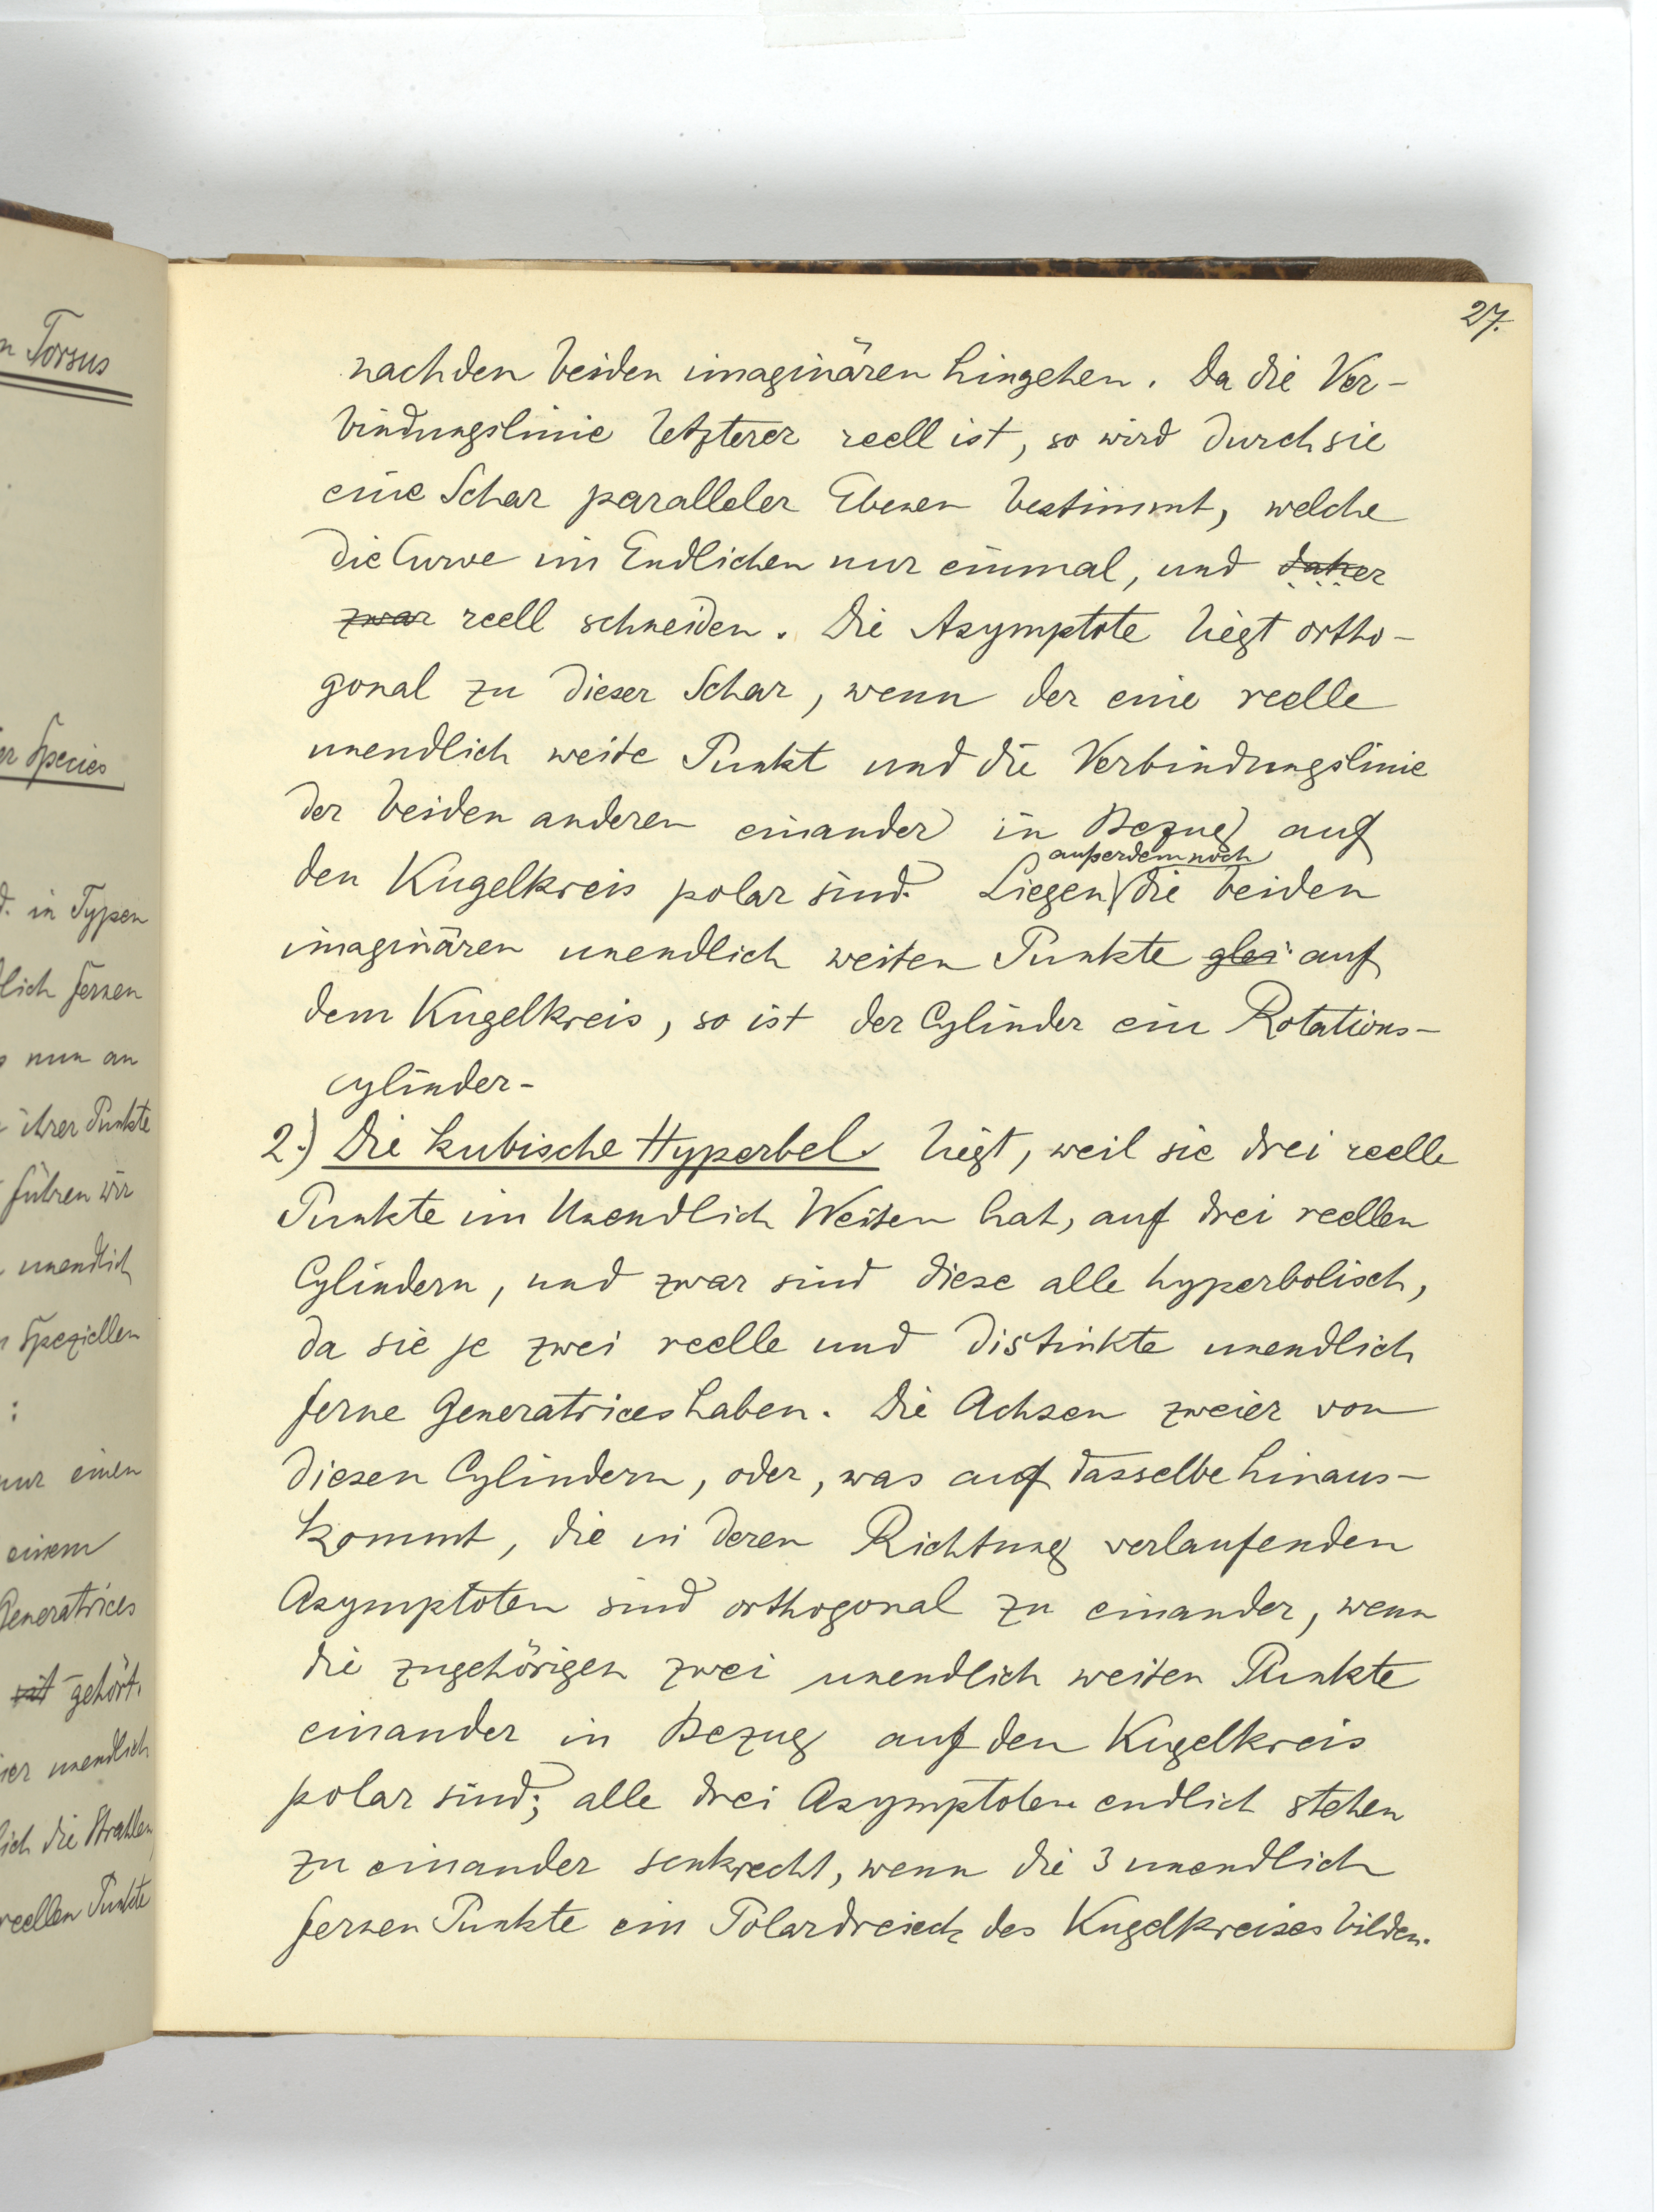 27.
nach den beiden imaginären hingehen. Da die Ver-
bindungslinie letzterer reell ist, so wird durch sie
eine Schar paralleler Ebenen bestimmt, welche
die Curve im Endlichen nur einmal, und daher
zwar reell schneiden. Die Asymptote liegt ortho-
gonal zu dieser Schar, wenn der eine reelle
unendlich weite Punkt und die Verbindungslinie
der beiden anderen einander in Bezug auf
außerdem noch
den Kugelkreis polar sind. Liegen die beiden
imaginären unendlich weiten Punkte glei auf
dem Kugelkreis, so ist der Cylinder ein Rotations-
cylinder-
2.) Die kubische Hyperbel liegt, weil sie drei reelle
Punkte im Unendlich Weiten hat, auf drei reellen
Cylindern, und zwar sind diese alle hyperbolisch,
da sie je zwei reelle und distinkte unendlich
ferne Generatrices haben. Die Achsen zweier von
diesen Cylindern, oder, was auf dasselbe hinaus-
kommt, die in deren Richtung verlaufenden
Asymptoten sind orthogonal zu einander, wenn
die zugehörigen zwei unendlich weiten Punkte
einander in Bezug auf den Kugelkreis
polar sind; alle drei Asymptoten endlich stehen
zu einander senkrecht, wenn die 3 unendlich
fernen Punkte ein Polardreieck des Kugelkreises bilden.
n Torsus
er Species
d. in Typen
lich fernen
nun an
ihrer Punkte
führen wir
unendlich
speziellen
:
nur einen
einem
Generatrices
gehört.
ier unendlich
lich die Strahlen
reellen Punkte